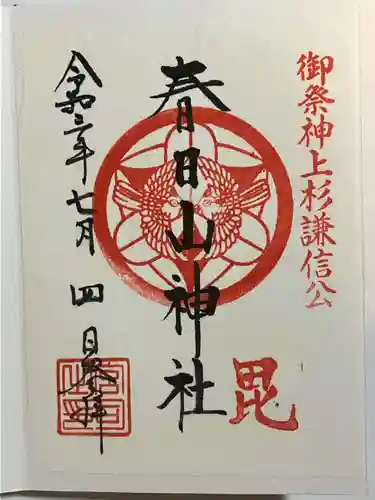 御祭神上杉謙信公
毘
春日山神社
令和二年七月四日参拝